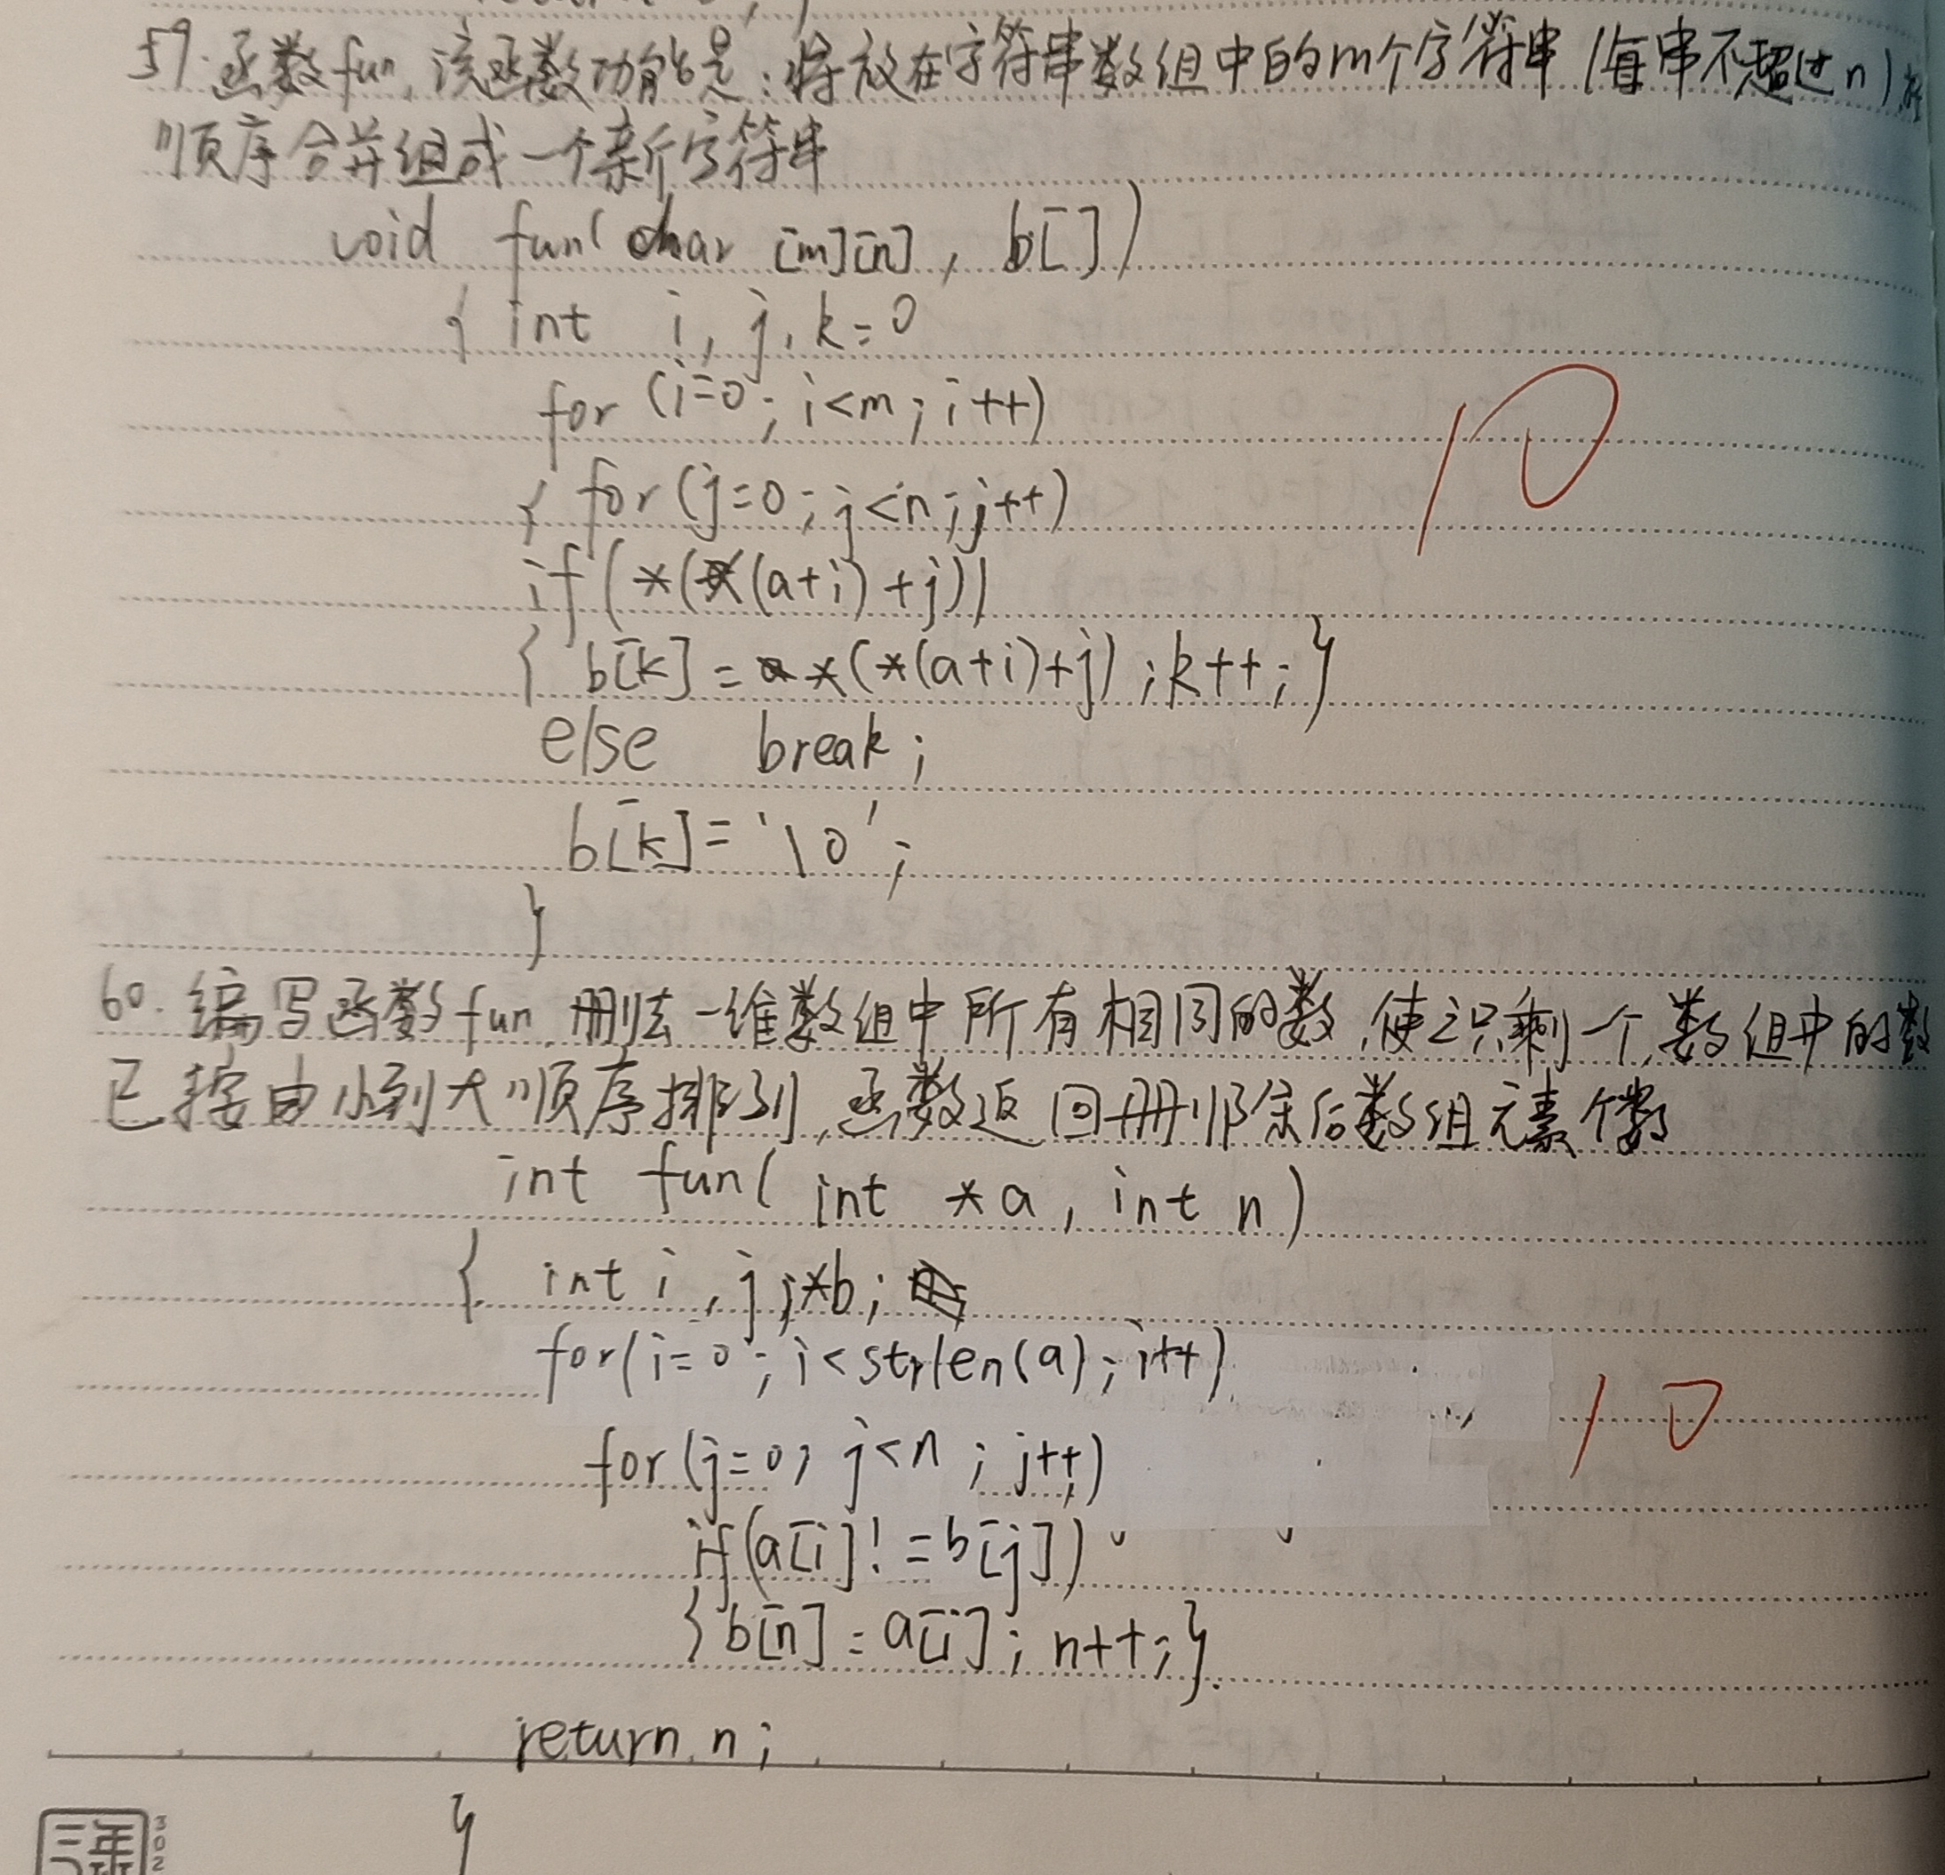 59. 函数fun, 该函数功能是:将放在字符串数组中的m个字符串(每串不超过n),按
顺序合并组成一个新字符串
void fun(char [m][n], b[])
{ int i, j, k=0
for (i=0; i<m; i++)
{ for(j=0; j<n; j++)
if(*(*(a+i)+j))
{ b[k] = *(*(a+i)+j); k++; }
else break;
b[k]='\0';
}
10
60. 编写函数fun, 删去一维数组中所有相同的数,使之只剩一个,数组中的数
已按由小到大顺序排列,函数返回删除后数组元素个数
int fun( int *a, int n)
{ int i, j, *b;
for(i=0; i<strlen(a); i++)
for(j=0; j<n; j++)
if(a[i]!=b[j])
{b[n]=a[i]; n++;}
return n;
}
10
三年
302